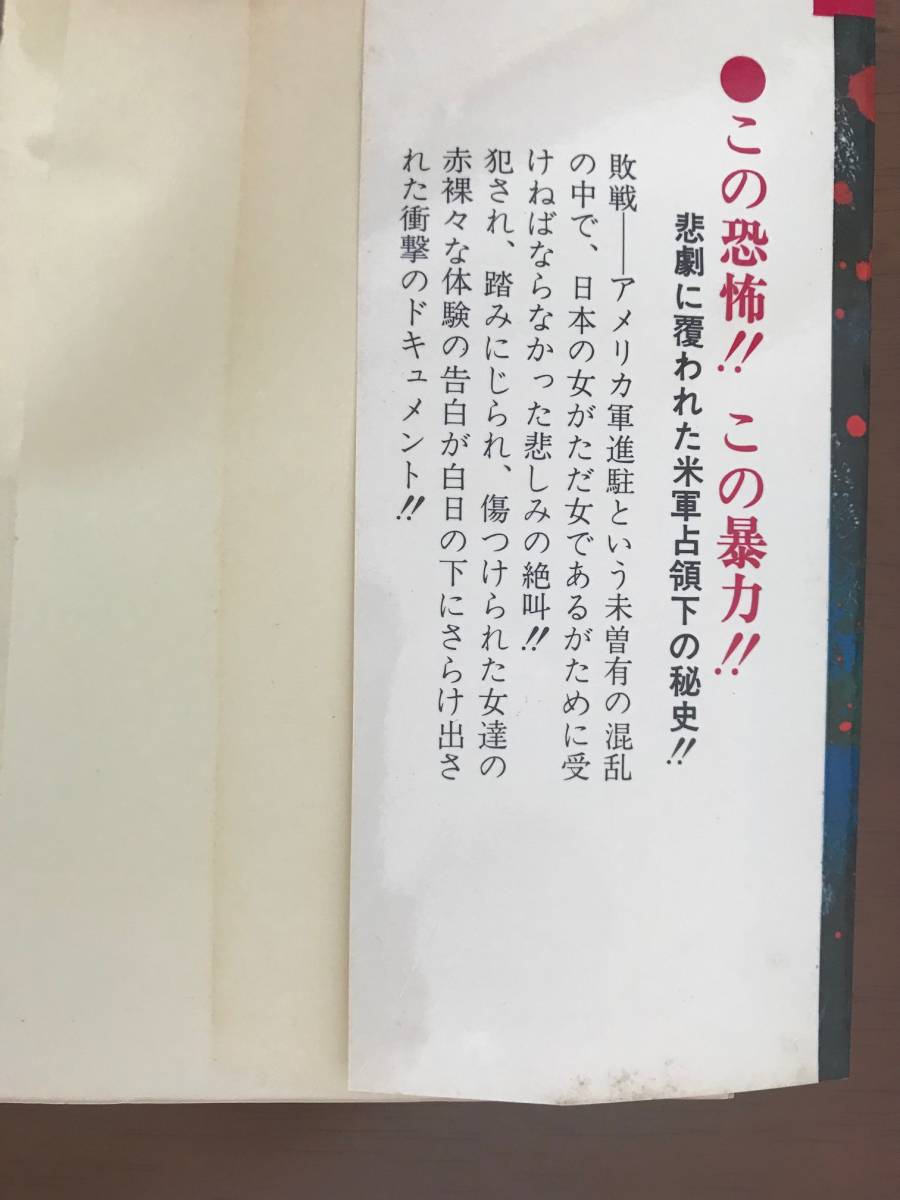 ●この恐怖!! この暴力!!
悲劇に覆われた米軍占領下の秘史!!
敗戦――アメリカ軍進駐という未曽有の混乱
の中で、日本の女がただ女であるがために受
けねばならなかった悲しみの絶叫!!
犯され、踏みにじられ、傷つけられた女達の
赤裸々な体験の告白が白日の下にさらけ出さ
れた衝撃のドキュメント!!